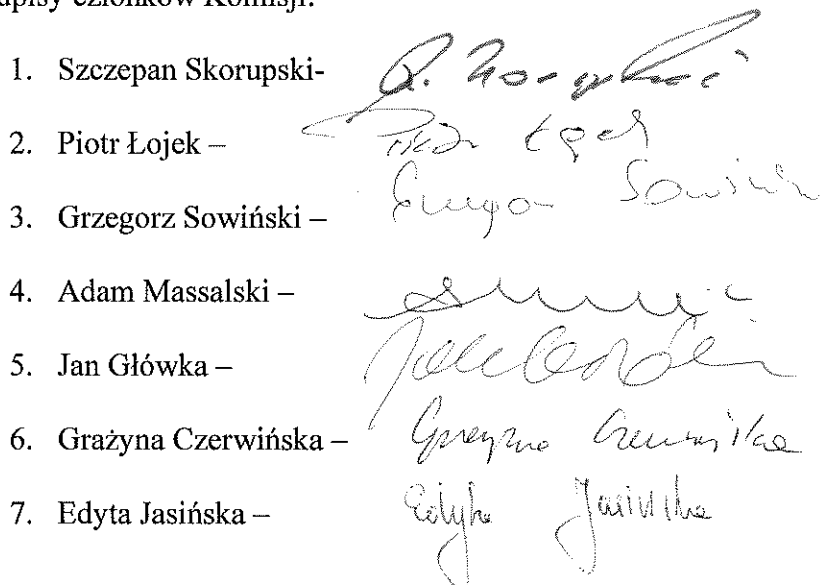 pisy członków Komisji:
1. Szczepan Skorupski-
2. Piotr Łojek –
3. Grzegorz Sowiński –
4. Adam Massalski –
5. Jan Główka –
6. Grażyna Czerwińska – Grażyna Czerwińska
7. Edyta Jasińska – Edyta Jasińska